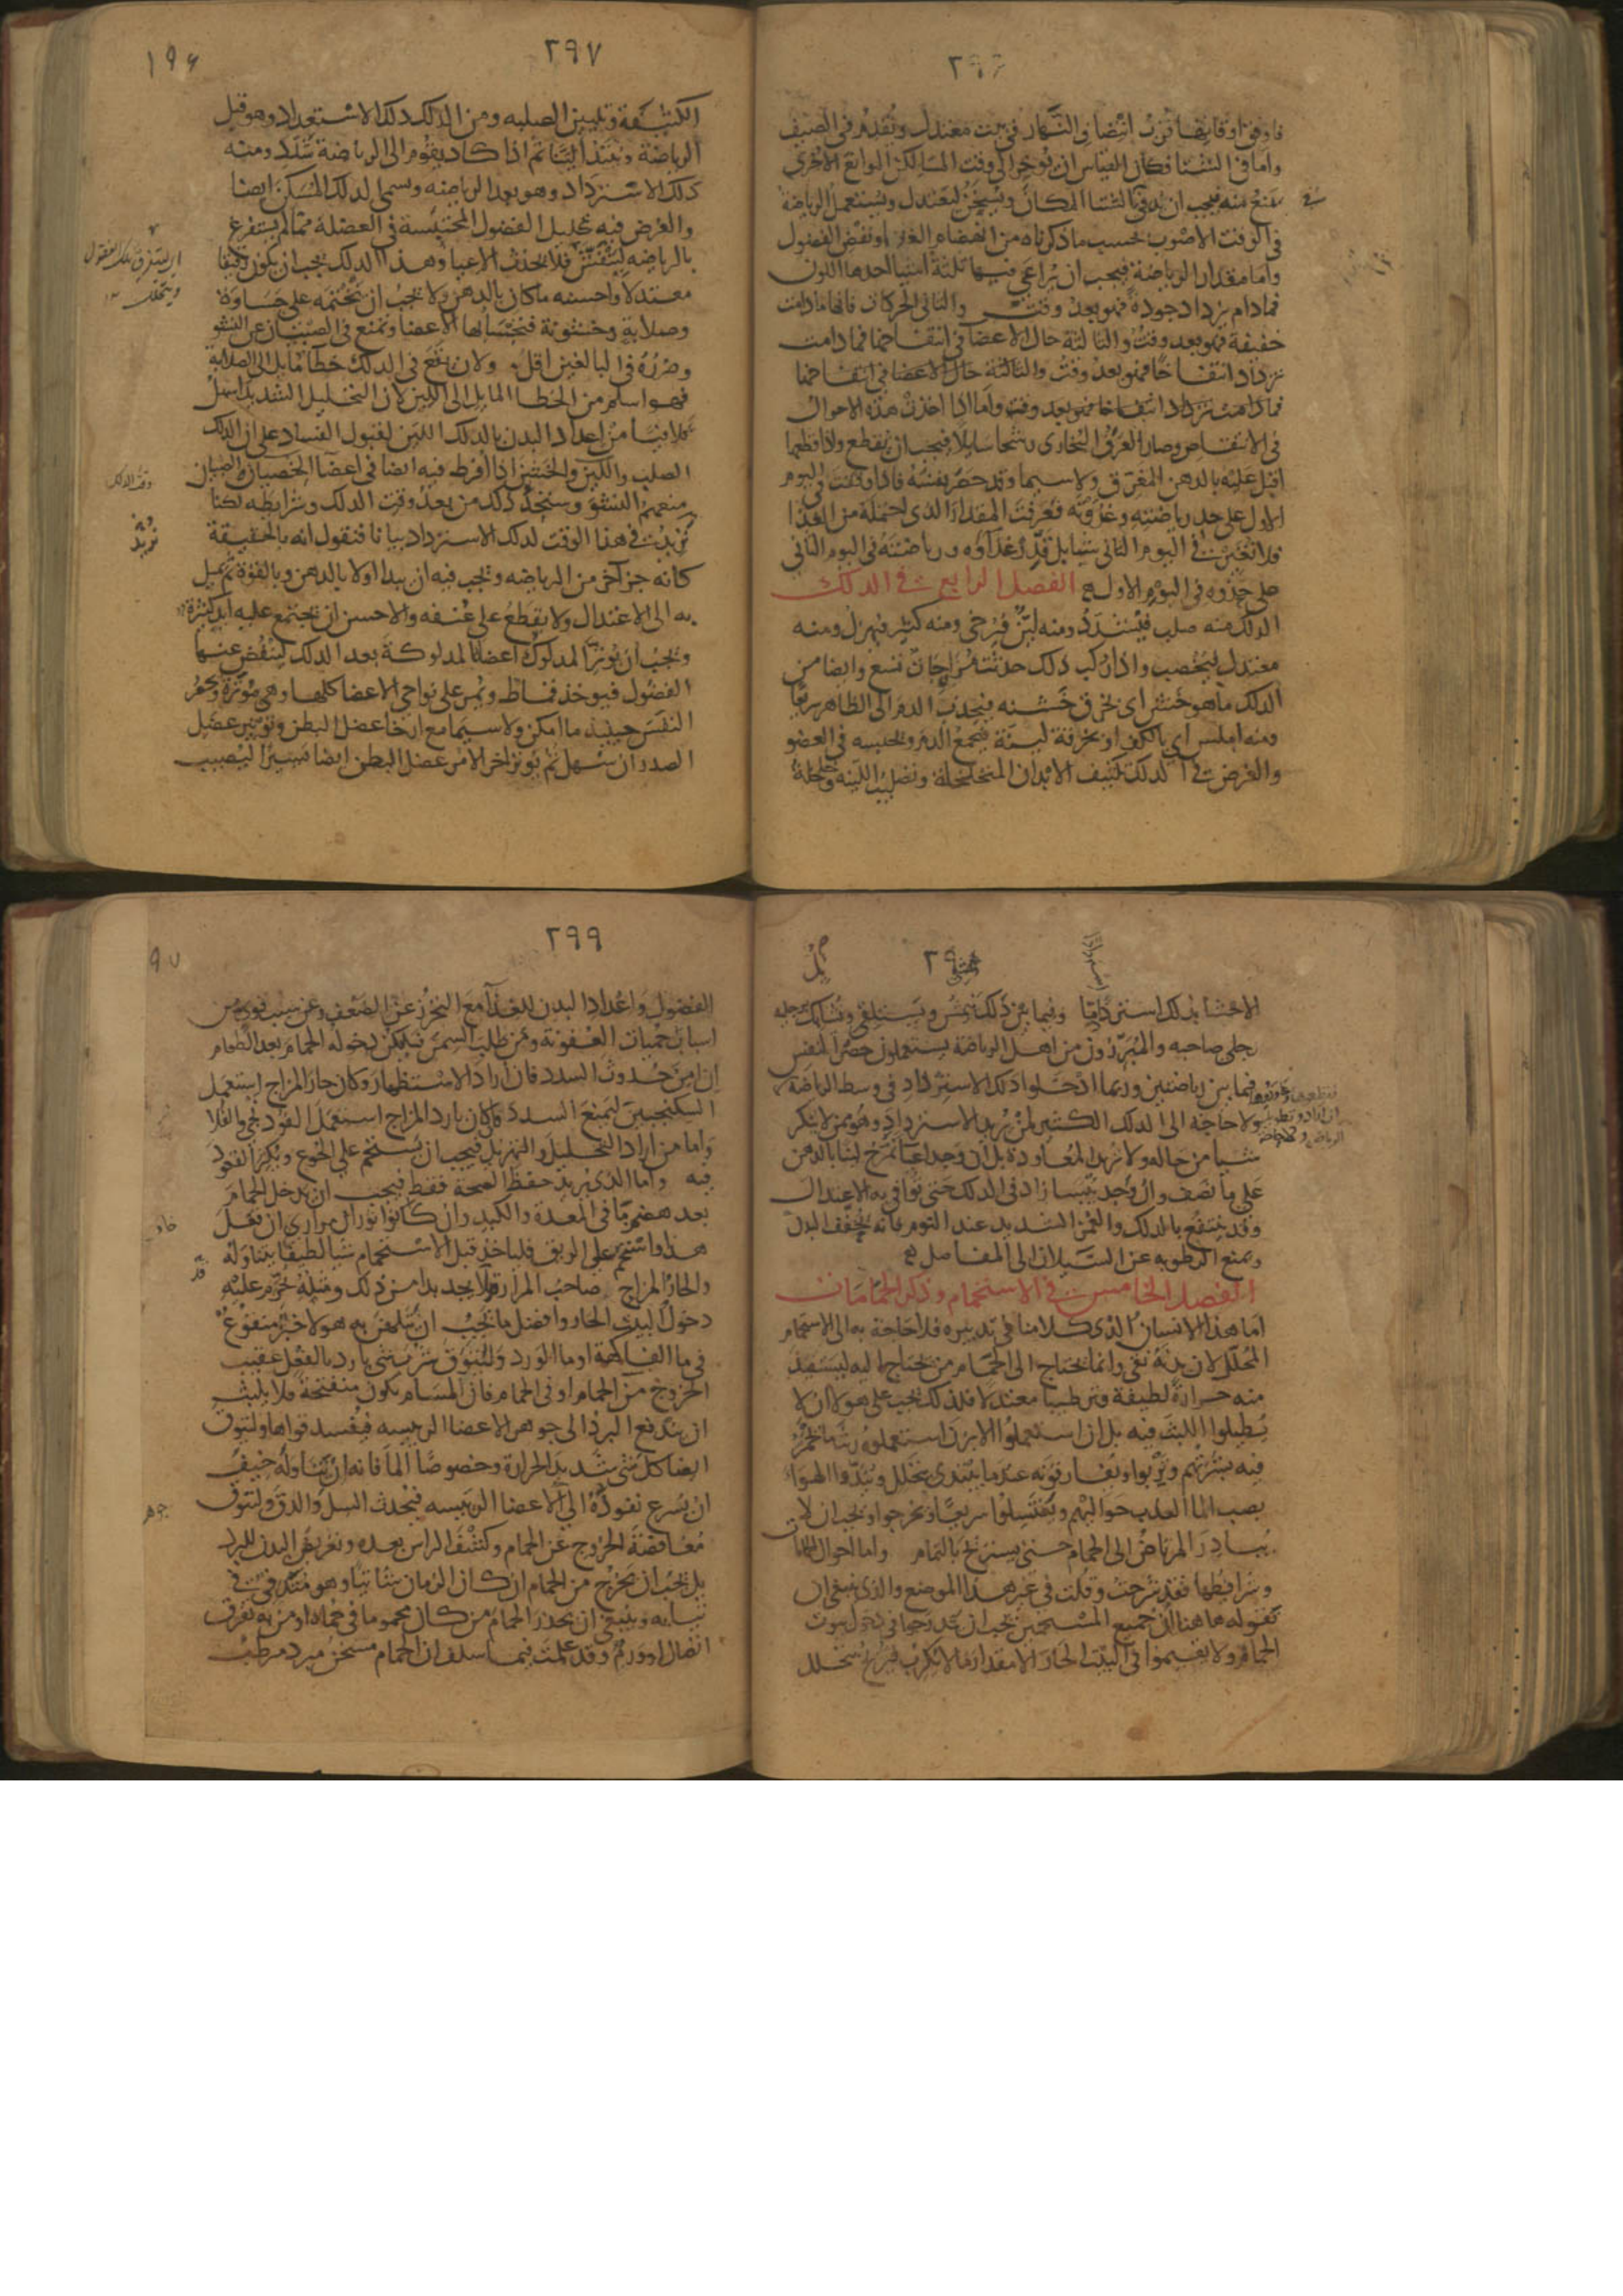 ٢٩٦
فاوفق اوقاتها قرب انتصاف النهار في بيت معتدل وتقدم في الصيف
واما في الشتا فكان القياس ان يوخر الى وقت المسا لكن الموانع الاخرى
تمنع منه فيجب ان يدفا في الشتا المكان ويسخن ليعتدل ويستعمل الرياضة
في الوقت الاصوب بحسب ما ذكرناه من انهضام الغذا ونفض الفضول
واما مقدار الرياضة فيجب ان يراعى فيها ثلثة اشيا احدها اللون
فما دام يزداد جودة فهو بعد وقت والثاني الحركات فانها ما دامت
خفيفة فهو بعد وقت والثالثة حال الاعضا في انتفاخها فما دامت
تزداد انتفاخا فهو بعد وقت والثالثة حال الاعضا في انتفاخها
فما دامت تزداد انتفاخا فهو بعد وقت واما اذا اخذت هذه الاحوال
في الانتقاص وصار العرق البخاري رشحا سايلا فيجب ان يقطع واذا قطعها
اقبل عليه بالدهن المعرق ولا سيما وقد حصر نفسه فاذا وقفت في اليوم
الاول على حد رياضته وغذوته فعرفت المقدار الذي احتمله من الغذا
فلا تغيرن في اليوم الثاني شيا بل قدر غذاوه ورياضته في اليوم الثاني
على حذوه في اليوم الاول الفصل الرابع في الدلك
الدلك منه صلب فيشدد ومنه لين فيرخي ومنه كثير فيهزل ومنه
معتدل ليخصب واذا ركب ذلك حدثت مزاجات تسع وايضا من
الدلك ما هو خشن اي بخرق خشنه فيجذب الدم الى الظاهر سريعا
ومنه املس اي بالكف او بخرقة لينة فيجمع الدم ويحبسه في العضو
والغرض في الدلك تكثيف الابدان المتخلخلة وتصليب اللينه وخلخلة
٢٩٧
١٩٦
الكثيفة وتليين الصلبه ومن الدلك دلك الاستعداد وهو قبل
الرياضة ويبتدا لينا ثم اذا كاد يقوم الى الرياضة شدد ومنه
دلك الاسترداد وهو بعد الرياضه ويسمى الدلك المسكن ايضا
والغرض فيه تحليل الفضول المحتبسة في العضلة مما لم يستفرغ
بالرياضه لينفش فلا يحدث الاعيا وهذا الدلك يجب ان يكون رقيقا
معتدلا واحسنه ما كان بالدهن ولا يجب ان يختمه على جساوة
وصلابة وخشونة فتجسا بها الاعضا وتمنع في الصبيان عن النشو
وضرره في البالغين اقل ولان يقع في الدلك خطا مايل الى الصلابة
فهو اسلم من الخطا المايل الى اللين لان التحليل الشديد اسهل
تلافيا من اعداد البدن بالدلك اللين لقبول الفساد على ان الدلك
الصلب واللين والخشن اذا افرط فيه ايضا في اعضا الصبيان
منعهم النشو وستجد ذلك من بعد وقت الدلك وشرايطه لكنا
نزيد في هذا الوقت لدلك الاسترداد بيانا فنقول انه بالحقيقة
كانه جز اخر من الرياضه ويجب فيه ان يبدا اولا بالدهن وبالقوة ثم يميل
به الى الاعتدال ولا يقطع على عنفه والاحسن ان يجتمع عليه ايد كثيرة
ويجب ان يوتر المدلوك اعضاه المدلوكة بعد الدلك لينفض عنها
الفضول فيوخذ قماط ويمر على نواحي الاعضا كلها وهي موترة ويحصر
النفس حينيذ ما امكن ولا سيما مع ارخا عضل البطن وتوتير عضل
الصدر ان سهل ثم يوتر اخر الامر عضل البطن ايضا يسيرا ليصيب
وقت الدلك
نزيد
٢٩٨
الاحشا بذلك استرداد ما وفيما بين ذلك يمشي ويستلقي ويشابك برجليه
رجلي صاحبه والمبرزون من اهل الرياضة يستعملون حصر النفس
فيما بين رياضتين وربما ادخلوا دلك الاسترداد في وسط الرياضة
ولا حاجة الى الدلك الكثير لمن يريد الاسترداد وهو ممن لا ينكر
شيا من حاله ولا يريد المعاودة بل ان وجد اعيا تمرخ لينا بالدهن
على ما نصف وان وجد يبسا زاد في الدلك حتى توافي به الاعتدال
وقد ينتفع بالدلك والغمز الشديد عند النوم فانه يجفف البدن
ويمنع الرطوبه عن السيلان الى المفاصل
الفصل الخامس في الاستحمام وذكر الحمامات
اما هذا الانسان الذي كلامنا في تدبيره فلا حاجة به الى الاستحمام
المحلل لان بدنه نقي وانما يحتاج الى الحمام من يحتاج اليه ليستفيد
منه حرارة لطيفة وترطيبا معتدلا فلذلك يجب على هولا ان لا
يطيلوا اللبث فيه بل ان استعملوا الابزن استعملوه ريثما تحمر
فيه بشرتهم وتربوا ويفارقونه عندما يبتدي يتحلل ويندوا الهوا
بصب الما العذب حواليهم ويغتسلوا سريعا ويخرجوا ويجب ان لا
يبادر المرتاض الى الحمام حتى يستريح بالتمام واما احوال الحمامات
وشرايطها فقد شرحت وقلت في غير هذا الموضع والذي ينبغي ان
نقوله هاهنا ان جميع المستحمين يجب ان يتدرجوا في دخول بيوت
الحمام ولا يقيموا في البيت الحار الا مقدار ما لا يكرب فيربح بتحلل
٢٩٩
٩٧
الفضول واعداد البدن للغذا مع التحرز عن الضعف وعن سبب قوي من
اسباب حميات العفونة ومن طلب السمن فليكن دخوله الحمام بعد الطعام
ان امن حدوث السدد فان اراد الاستظهار وكان حار المزاج استعمل
السكنجبين ليمنع السدد وان كان بارد المزاج استعمل الفودنجي والفلافلي
واما من اراد التحليل والتهزيل فيجب ان يستحم على الجوع ويكثر القعود
فيه واما الذي يريد حفظ الصحة فقط فيجب ان يدخل الحمام
بعد هضم ما في المعدة والكبد وان كانوا ثوران مراري ان فعل
هذا واستحم على الريق فلياخذ قبل الاستحمام شيا لطيفا يتناوله
والحار المزاج صاحب المرار قد لا يجد بدا من ذلك ومثله يحرم عليه
دخول البيت الحار وافضل ما يجب ان يتلهن به هولا خبز منقوع
في ما الفاكهة او ما الورد وليتوق شرب شي بارد بالفعل عقيب
الخروج من الحمام او في الحمام فان المسام تكون منفتحة فلا يلبث
ان يندفع البرد الى جوهر الاعضا الرييسه فيفسد قواها وليتوق
ايضا كل شي شديد الحرارة وخصوصا الما فانه ان تناوله خيف
ان يسرع نفوذه الى الاعضا الرييسه فيحدث السل والدق وليتوق
مغافصة الخروج عن الحمام وكشف الراس بعده وتعريض البدن للبرد
بل يجب ان يخرج من الحمام ان كان الزمان شاتيا وهو متدثر في
ثيابه وينبغي ان يحذر الحمام من كان محموما في حماه او من به تفرق
اتصال او ورم وقد علمت فيما سلف ان الحمام مسخن مبرد مرطب